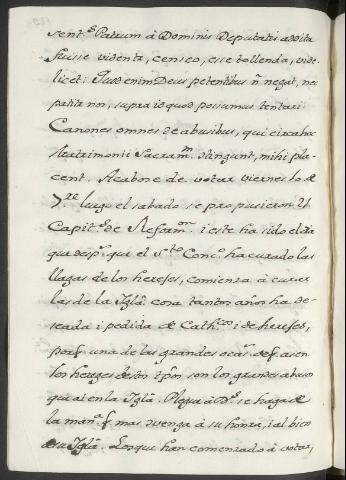 sent.ª Patrum à Dominis Deputatis addita
fuisse videnta, censeo, esse tollenda, vide-
licet: Iuss enim Deus petentibus ñ negat, nec
patitur nos, supra id quod possumus tentari.
Canones omnes de abusibus, qui circa hoc
Matrimonii Sacram.m contingunt, mihi pla-
cent. Acabose de votar viernes 10 de
7.re luego el sabado se propusieron 21
Capit.s de Reform.on i este ha sido el dia
que desp.s que el S.to Conc.o ha curado las
llagas de los hereges, comienza à curar
las de la Iglã. cosa tantos años ha de-
seada i pedida de Cath.cos i de hereges,
porq̃ una de las grandes ocas.s de q̃ aien
los hereges destos tp̃os son los grandes abusos
que ai en la Iglã. Plega à D.s se haga de
la man.a q̃ mas convenga à su honra, i al bien
de su Iglã. Los que han comenzado à votar,